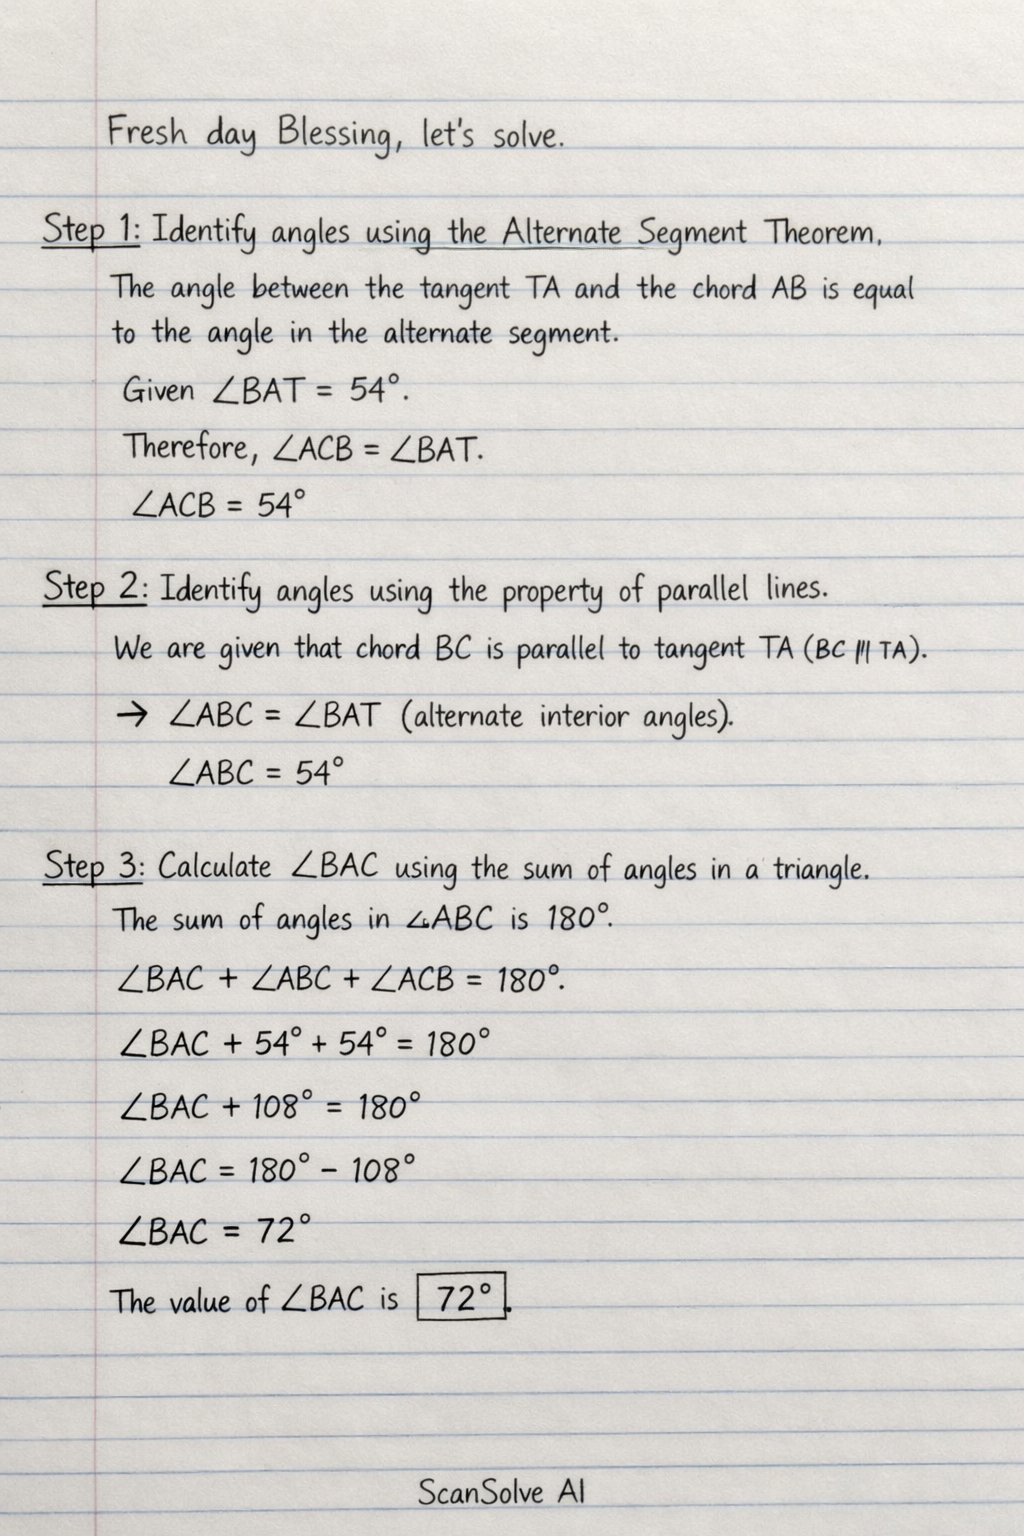 Fresh day Blessing, let's solve.
Step 1: Identify angles using the Alternate Segment Theorem.
The angle between the tangent TA and the chord AB is equal
to the angle in the alternate segment.
Given ∠BAT = 54°.
Therefore, ∠ACB = ∠BAT.
∠ACB = 54°
Step 2: Identify angles using the property of parallel lines.
We are given that chord BC is parallel to tangent TA (BC ∥| TA).
→ ∠ABC = ∠BAT (alternate interior angles).
∠ABC = 54°
Step 3: Calculate ∠BAC using the sum of angles in a triangle.
The sum of angles in ∠ABC is 180°.
∠BAC + ∠ABC + ∠ACB = 180°.
∠BAC + 54° + 54° = 180°
∠BAC + 108° = 180°
∠BAC = 180° − 108°
∠BAC = 72°
The value of ∠BAC is 72°.
ScanSolve AI